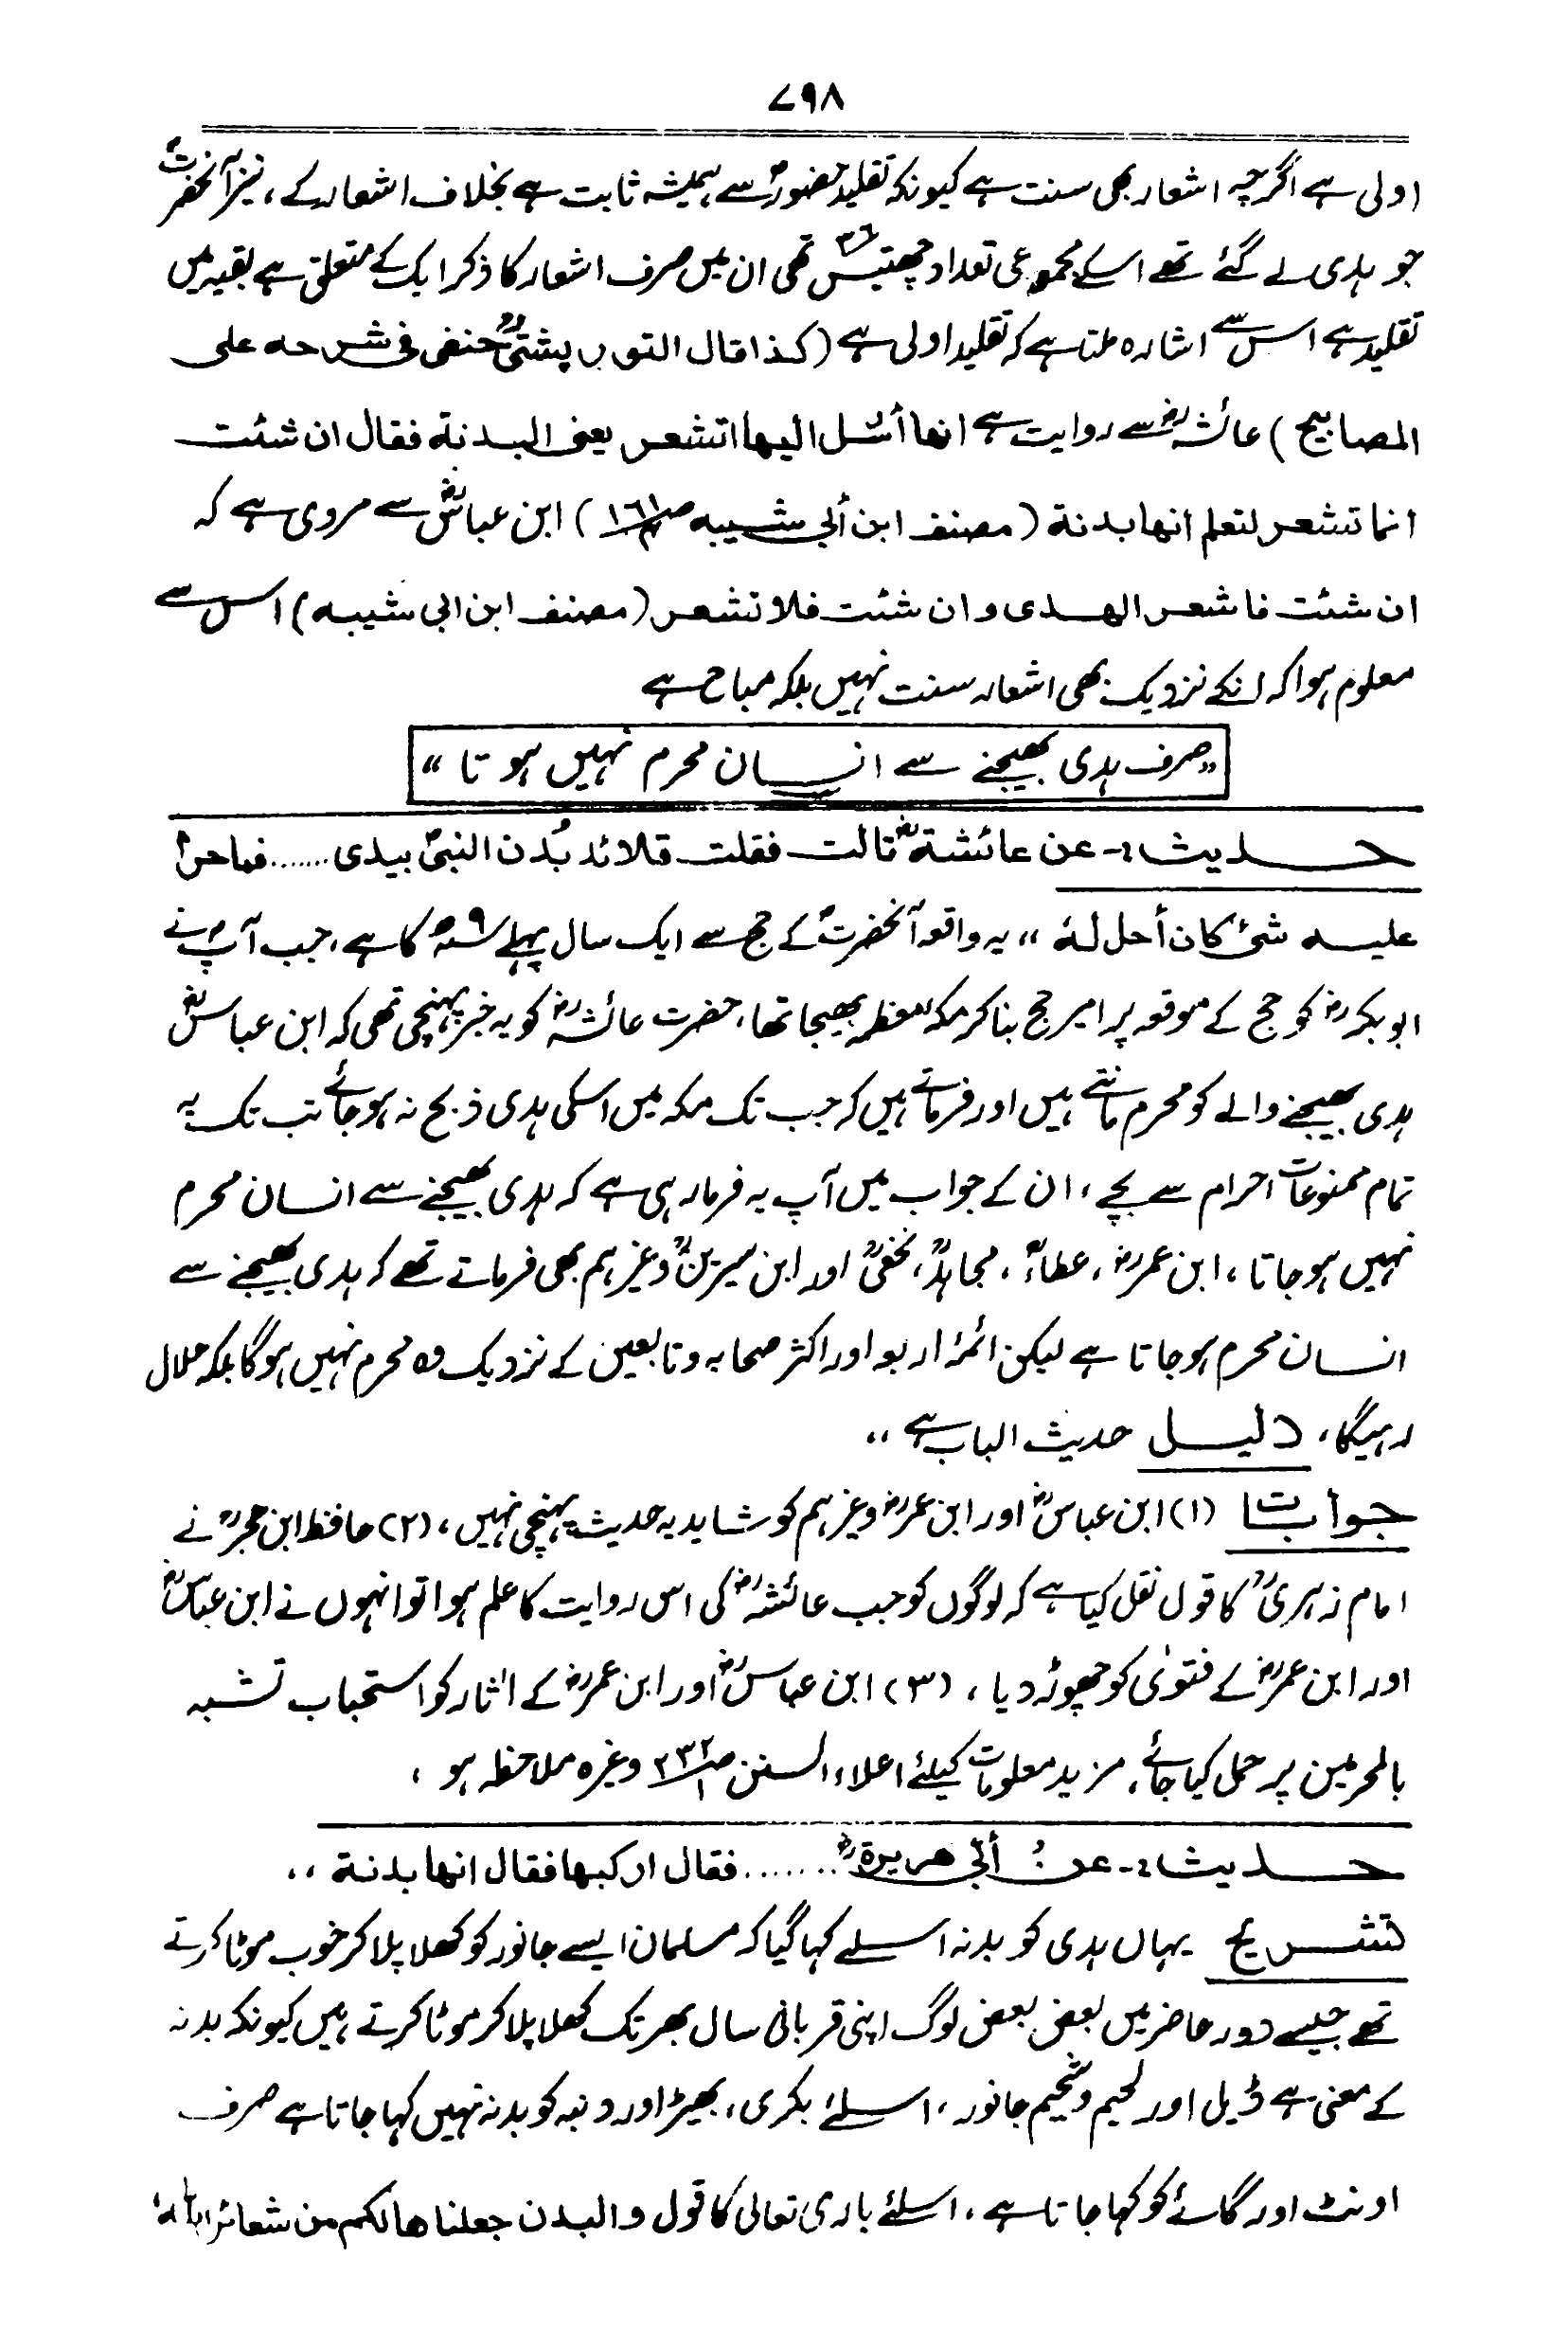 ۷۹۸
اولی ہے اگرچہ اشعار بھی سنت ہے کیونکہ تقلید حضورؐ سے ہمیشہ ثابت ہے بخلاف اشعار کے، نیز آنحضرتؐ
جو ہدی لے گئے تھے اسکے مجموعی تعداد چھتیس ۳۶ تھی ان میں صرف اشعار کا ذکر ایک کے متعلق ہے بقیہ میں
تقلید ہے اس سے اشارہ ملتا ہے کہ تقلید اولی ہے (کذا قال التوربشتیؒ حنفی فی شرحہ علی
المصابیح) عائشہؓ سے روایت ہے انھا أرسل الیھا اتشعر یعنی البدنة فقال ان شئت
انما تشعر لتعلم انھا بدنة (مصنف ابن أبی شیبه ص۱۶۱) ابن عباسؓ سے مروی ہے کہ
ان شئت فاشعر الھدی و ان شئت فلا تشعر (مصنف ابن ابی شیبه) اس سے
معلوم ہوا کہ انکے نزدیک بھی اشعار سنت نہیں بلکہ مباح ہے
،،صرف ہدی بھیجنے سے انسان محرم نہیں ہوتا،،
حدیث :- عن عائشة ؓ قالت فقلت قلائد بُدن النبیؐ بیدی ....... فما حرم
علیه شئ کان أحل لهٗ ،، یہ واقعہ آنحضرتؐ کے حج سے ایک سال پہلے ۹ھ کا ہے، جب آپؐ نے
ابوبکرؓ کو حج کے موقعہ پر امیر حج بنا کر مکہ معظمہ بھیجا تھا، حضرت عائشہؓ کو یہ خبر پہنچی تھی کہ ابن عباسؓ
ہدی بھیجنے والے کو محرم مانتے ہیں اور فرماتے ہیں کہ جب تک مکہ میں اسکی ہدی ذبح نہ ہوجائے تب تک یہ
تمام ممنوعات احرام سے بچے، ان کے جواب میں آپ یہ فرما رہی ہے کہ ہدی بھیجنے سے انسان محرم
نہیں ہوجاتا، ابن عمرؓ، عطاءؒ، مجاہدؒ، نخعیؒ اور ابن سیرینؒ وغیرہم بھی فرماتے تھے کہ ہدی بھیجنے سے
انسان محرم ہوجاتا ہے لیکن ائمۂ اربعہ اور اکثر صحابہ و تابعین کے نزدیک وہ محرم نہیں ہوگا بلکہ حلال
رہیگا، دلیل حدیث الباب ہے ،،
جوابات (۱) ابن عباسؓ اور ابن عمرؓ وغیرہم کو شاید یہ حدیث پہنچی نہیں، (۲) حافظ ابن حجرؒ نے
امام زہریؒ کا قول نقل کیا ہے کہ لوگوں کو جب عائشہؓ کی اس روایت کا علم ہوا تو انہوں نے ابن عباسؓ
اور ابن عمرؓ کے فتویٰ کو چھوڑ دیا، (۳) ابن عباسؓ اور ابن عمرؓ کے اٰثار کو استحباب تشبہ
بالمحرمین پر حمل کیا جائے، مزید معلومات کیلئے اعلاء السنن ص۲۳۲ وغیرہ ملاحظہ ہو،
حدیث :- عن أبی ھریرة ؓ ....... فقال ارکبھا فقال انھا بدنة ،،
تشریح یہاں ہدی کو بدنہ اسلے کہا گیا کہ مسلمان ایسے جانور کو کھلا پلا کر خوب موٹا کرتے
تھے جیسے دور حاضر میں بعض بعض لوگ اپنی قربانی سال بھر تک کھلا پلا کر موٹا کرتے ہیں کیونکہ بدنہ
کے معنی ہے ڈیل اور لحیم و شحیم جانور، اسلئے بکری، بھیڑ اور دنبہ کو بدنہ نہیں کہا جاتا ہے صرف
اونٹ اور گائے کو کہا جاتا ہے، اسلئے باری تعالی کا قول والبدن جعلناھا لکم من شعائر اللہ